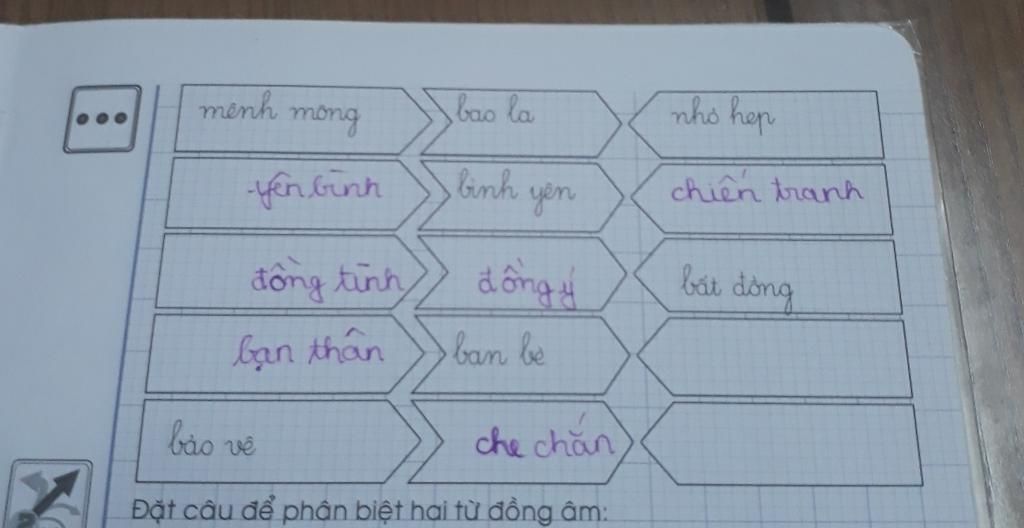 mênh mông bao la nhỏ hẹp
yên bình bình yên chiến tranh
đồng tình đồng ý bất đồng
bạn thân bạn bè
bảo vệ che chắn
Đặt câu để phân biệt hai từ đồng âm: